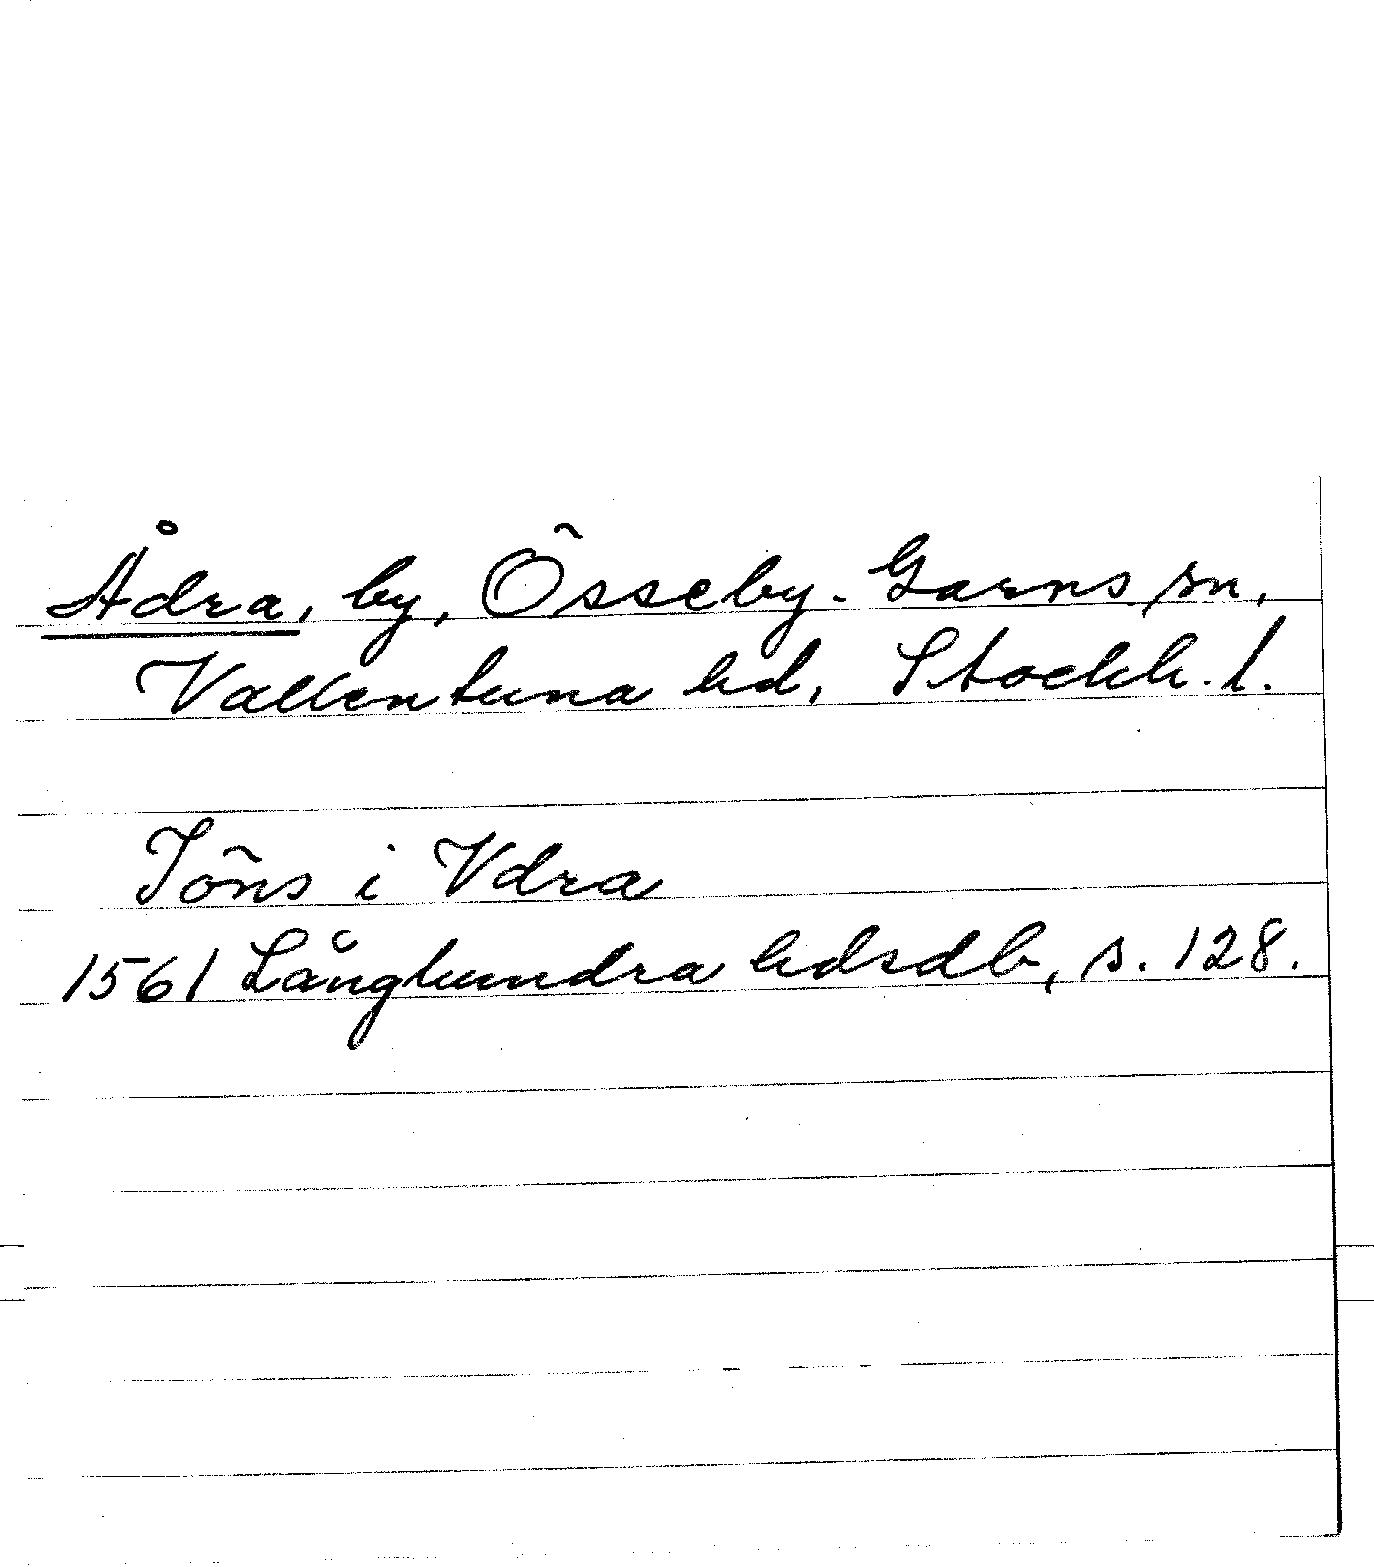 Ådra, by, Össeby-Garns sn,
Vallentuna hd, Stockh. l.
Jöns i Vdra
1561 Långhundra hdsdb, s. 128.